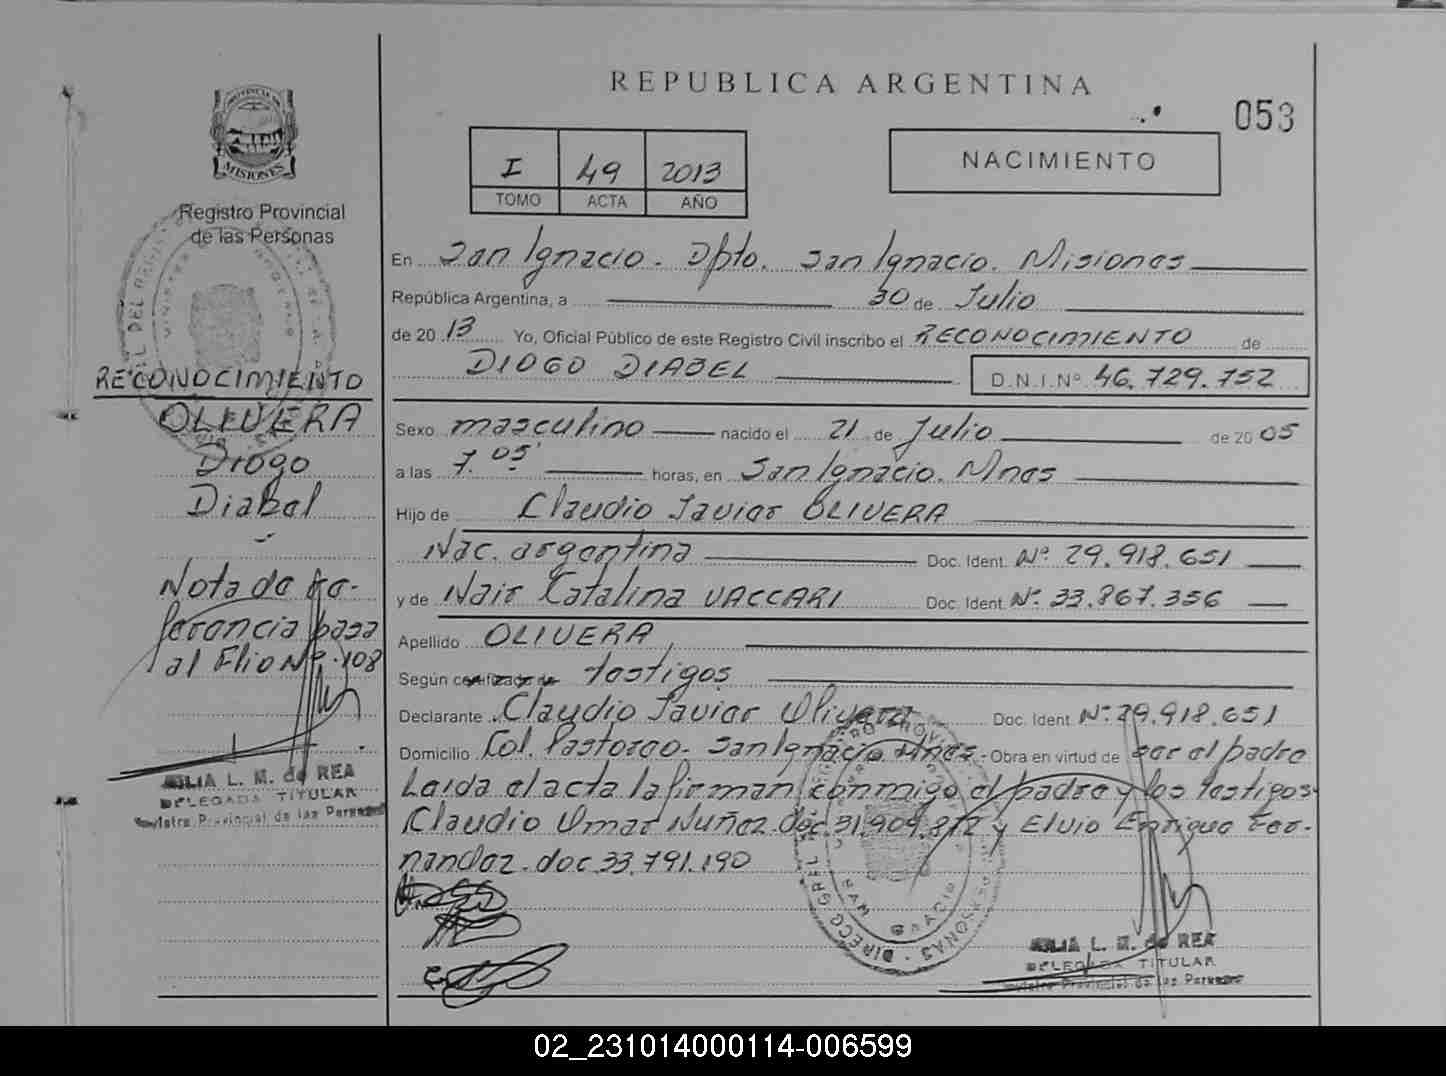 REPUBLICA ARGENTINA
053
I 49 2013
TOMO ACTA AÑO
NACIMIENTO
MISIONES
Registro Provincial
de las Personas
RECONOCIMIENTO
OLIVERA
Diogo
Diabel
Nota de re-
ferencia pasa
al Flio Nº 108
LIA L. M. de REA
DELEGADA TITULAR
Provincial de las Personas
En San Ignacio. Dpto. San Ignacio. Misiones
República Argentina, a 30 de Julio
de 20 13 Yo, Oficial Público de este Registro Civil inscribo el RECONOCIMIENTO de
DIOGO DIABEL D.N.I.Nº 46.729.752
Sexo masculino nacido el 21 de Julio de 20 05
a las 7.05' horas, en San Ignacio. Mnes
Hijo de Claudio Javier OLIVERA
Nac. argentina Doc. Ident. Nº 29.918.651
y de Nair Catalina VACCARI Doc. Ident. Nº 33.867.356
Apellido OLIVERA
Según certificado de testigos
Declarante Claudio Javier Olivera Doc. Ident. Nº 29.918.651
Domicilio Col. Pastoreo. San Ignacio Mnes - Obra en virtud de ser el padre
Leida el acta la firman conmigo el padre y los testigos
Claudio Omar Nuñez. doc. 31.909.872 y Elvio Enrique Fer-
nandez. doc. 33.791.190
LIA L. M. de REA
DELEGADA TITULAR
Provincial de las Personas
02_231014000114-006599